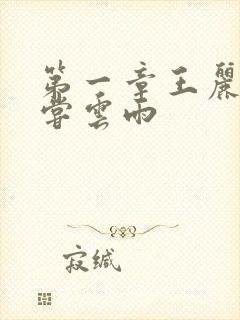 第一章王麗
嘗雲雨
寂缄